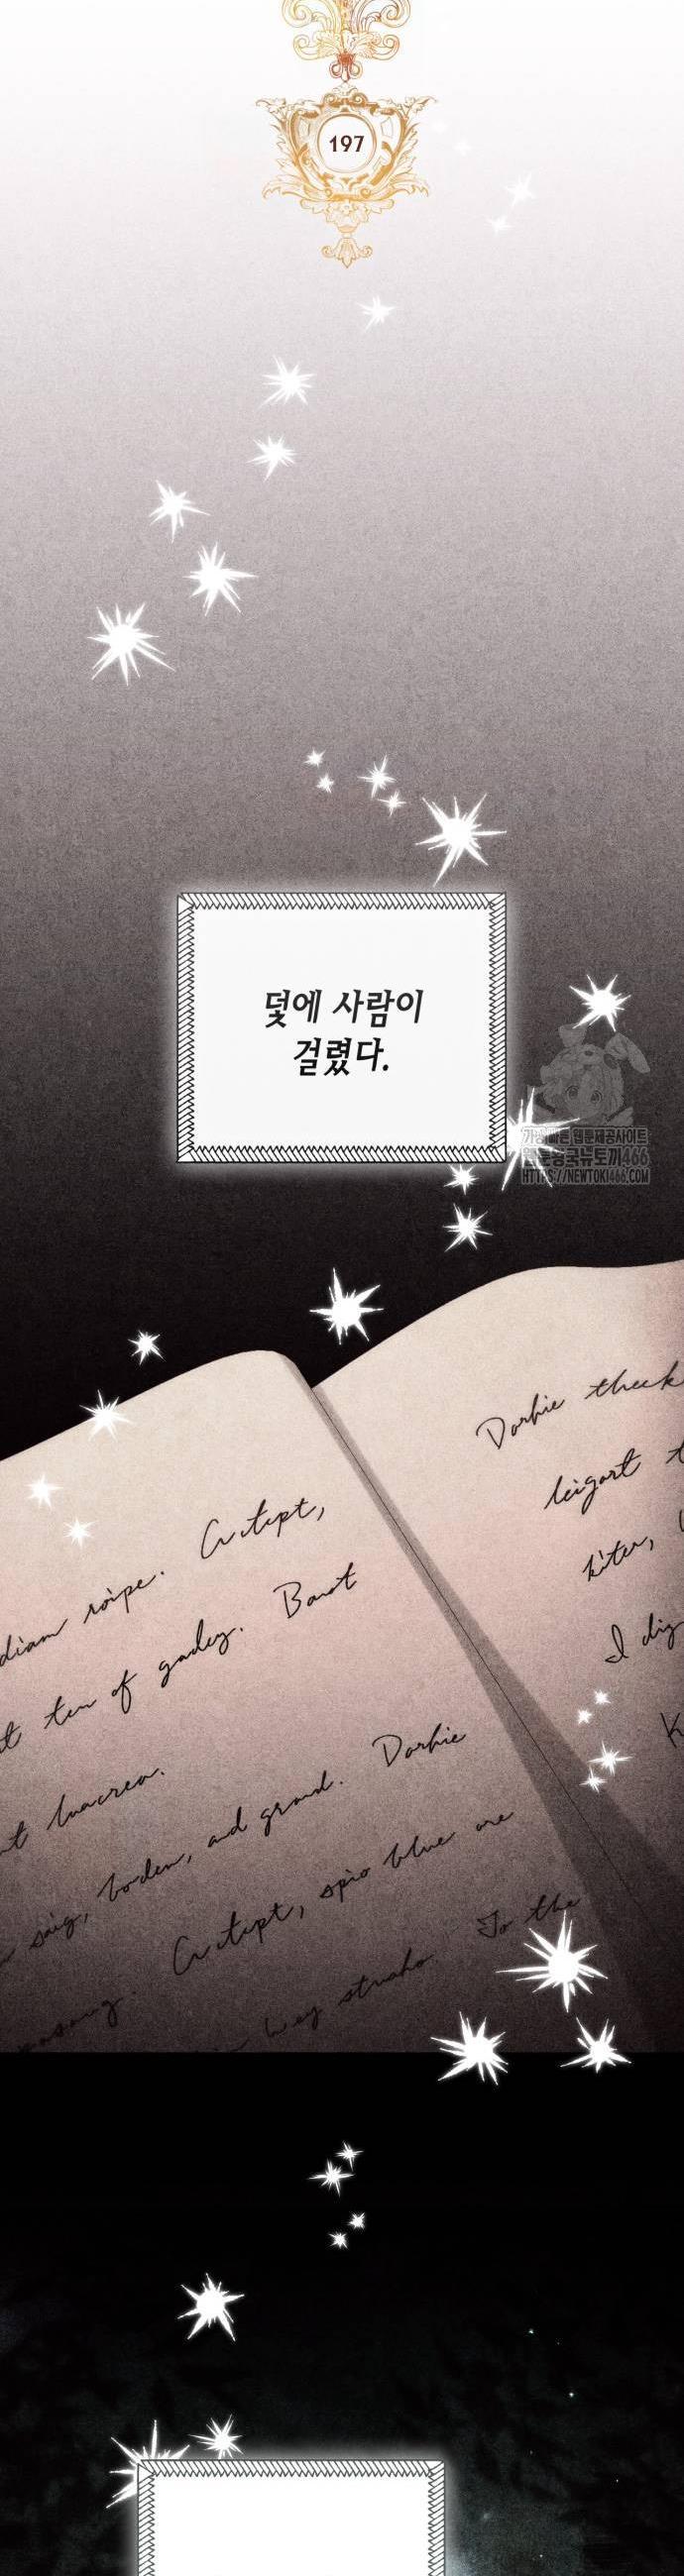 197
덫에 사람이
걸렸다.
가장 빠른 웹툰제공사이트
웹툰왕국뉴토끼466
HTTPS://NEWTOKI466.COM
Dorhie
leigart
kiter,
I dig
roipe. Critept,
ten of gadey. Barot
luacrea.
saig, boden, and grand. Dorhie
Critept, spio blue are
way straho To the